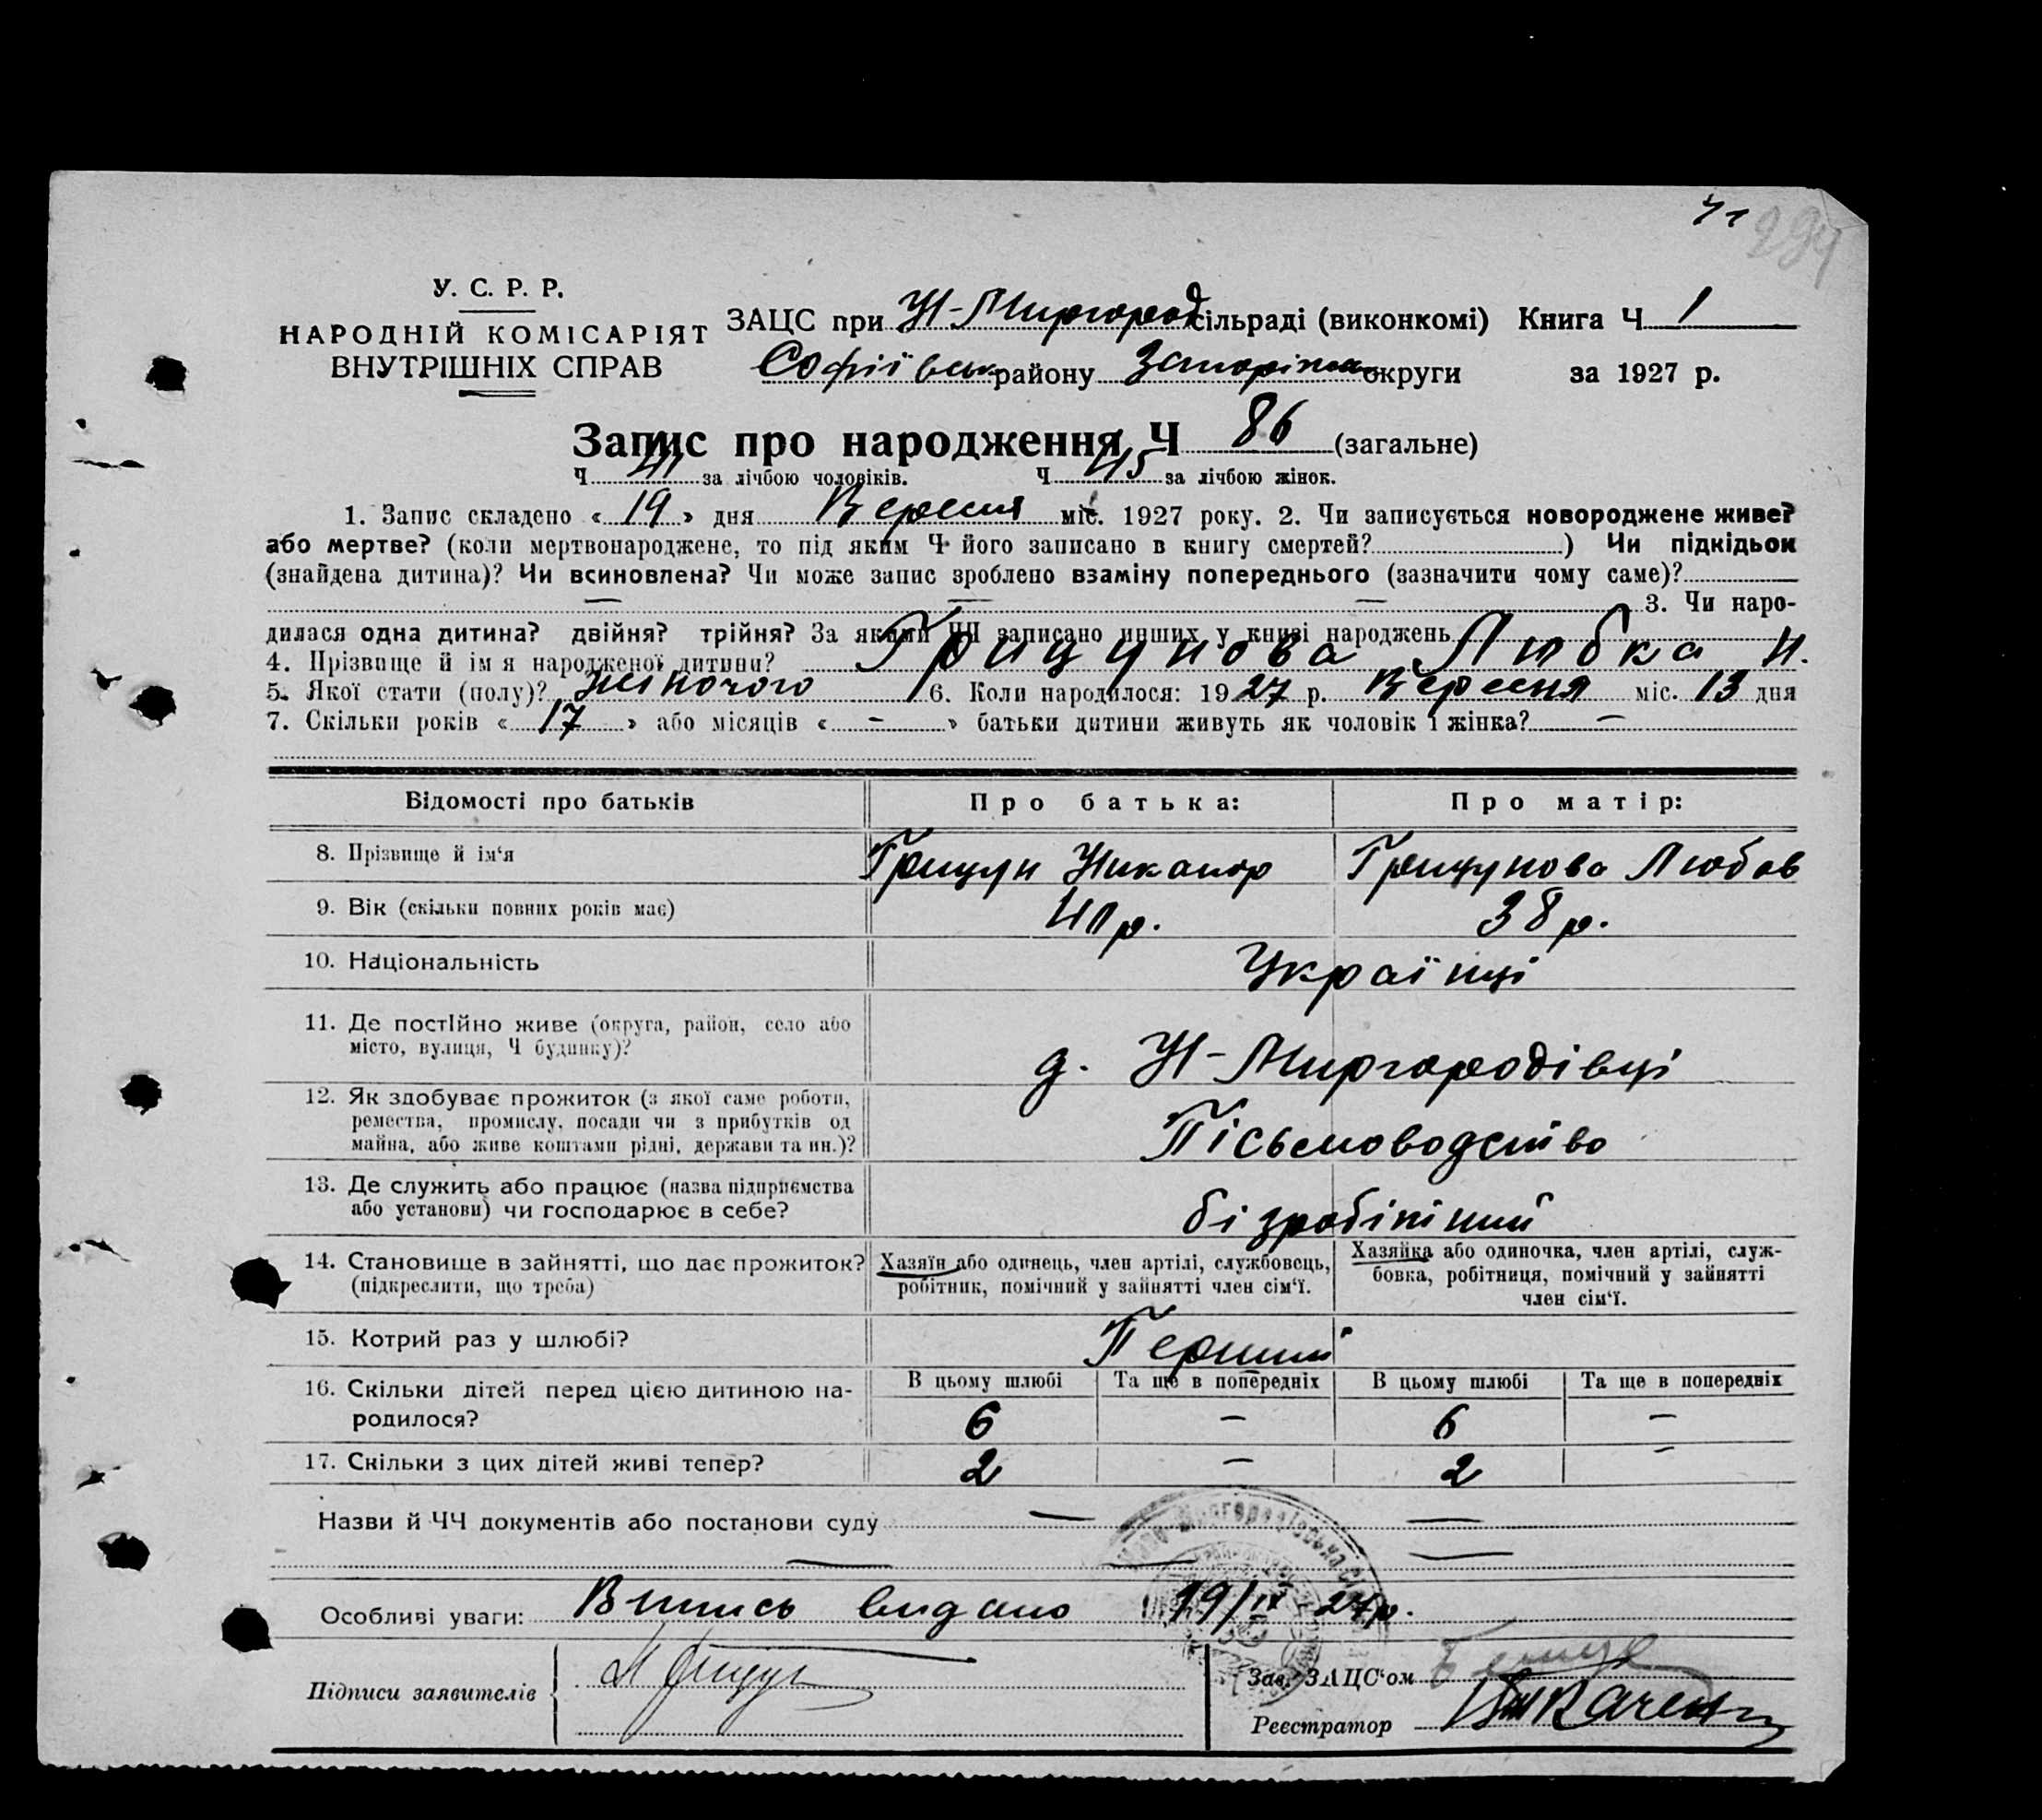 41
294
У. С. Р. Р.
НАРОДНІЙ КОМІСАРІЯТ
ВНУТРІШНІХ СПРАВ
ЗАЦС при Н-Миргород сільраді (виконкомі) Книга Ч 1
Софіївськ району Запоріжж округи за 1927 р.
Запис про народження Ч 86 (загальне)
Ч 41 за лічбою чоловіків. Ч 45 за лічбою жінок.
1. Запис складено « 19 » дня Вересня міс. 1927 року. 2. Чи записується новороджене живе?
або мертве? (коли мертвонароджене, то під яким Ч його записано в книгу смертей? ) Чи підкідьок
(знайдена дитина)? Чи всиновлена? Чи може запис зроблено взаміну попереднього (зазначити чому саме)?
— — — 3. Чи наро-
дилася одна дитина? двійня? трійня? За якими ЧЧ записано инших у книзі народжень
4. Прізвище й ім я народженої дитини? Грицунова Любка Н.
5. Якої стати (полу)? жіночого 6. Коли народилося: 1927 р. Вересня міс. 13 дня
7. Скільки років « 17 » або місяців « - » батьки дитини живуть як чоловік і жінка? —
Відомості про батьків Про батька: Про матір:
8. Прізвище й ім‘я Грицун Никанор Грицунова Любов
9. Вік (скільки повних років має) р. 38 р.
10. Національність Українці
11. Де постійно живе (округа, район, село або
місто, вулиця, Ч будинку)? д. Н-Миргородівці
12. Як здобуває прожиток (з якої саме роботи,
ремества, промислу, посади чи з прибутків од
майна, або живе коштами рідні, держави та ин.)? Пісьмоводство
13. Де служить або працює (назва підприємства
або установи) чи господарює в себе? бізробітний
14. Становище в зайнятті, що дає прожиток?
(підкреслити, що треба)
Хазяїн або одинець, член артілі, службовець,
робітник, помічний у зайнятті член сім‘ї.
Хазяйка або одиночка, член артілі, служ-
бовка, робітниця, помічний у зайнятті
член сім‘ї.
15. Котрий раз у шлюбі? Перший
16. Скільки дітей перед цією дитиною на-
родилося?
В цьому шлюбі Та ще в попередніх В цьому шлюбі Та ще в попередніх
6 — 6 —
17. Скільки з цих дітей живі тепер? 2 — 2 —
Назви й ЧЧ документів або постанови суду — —
— — —
Особливі уваги: Випись видано 19/IX 27 р.
Підписи заявителів Н Грицун
Зав. ЗАЦС‘ом
Реєстратор